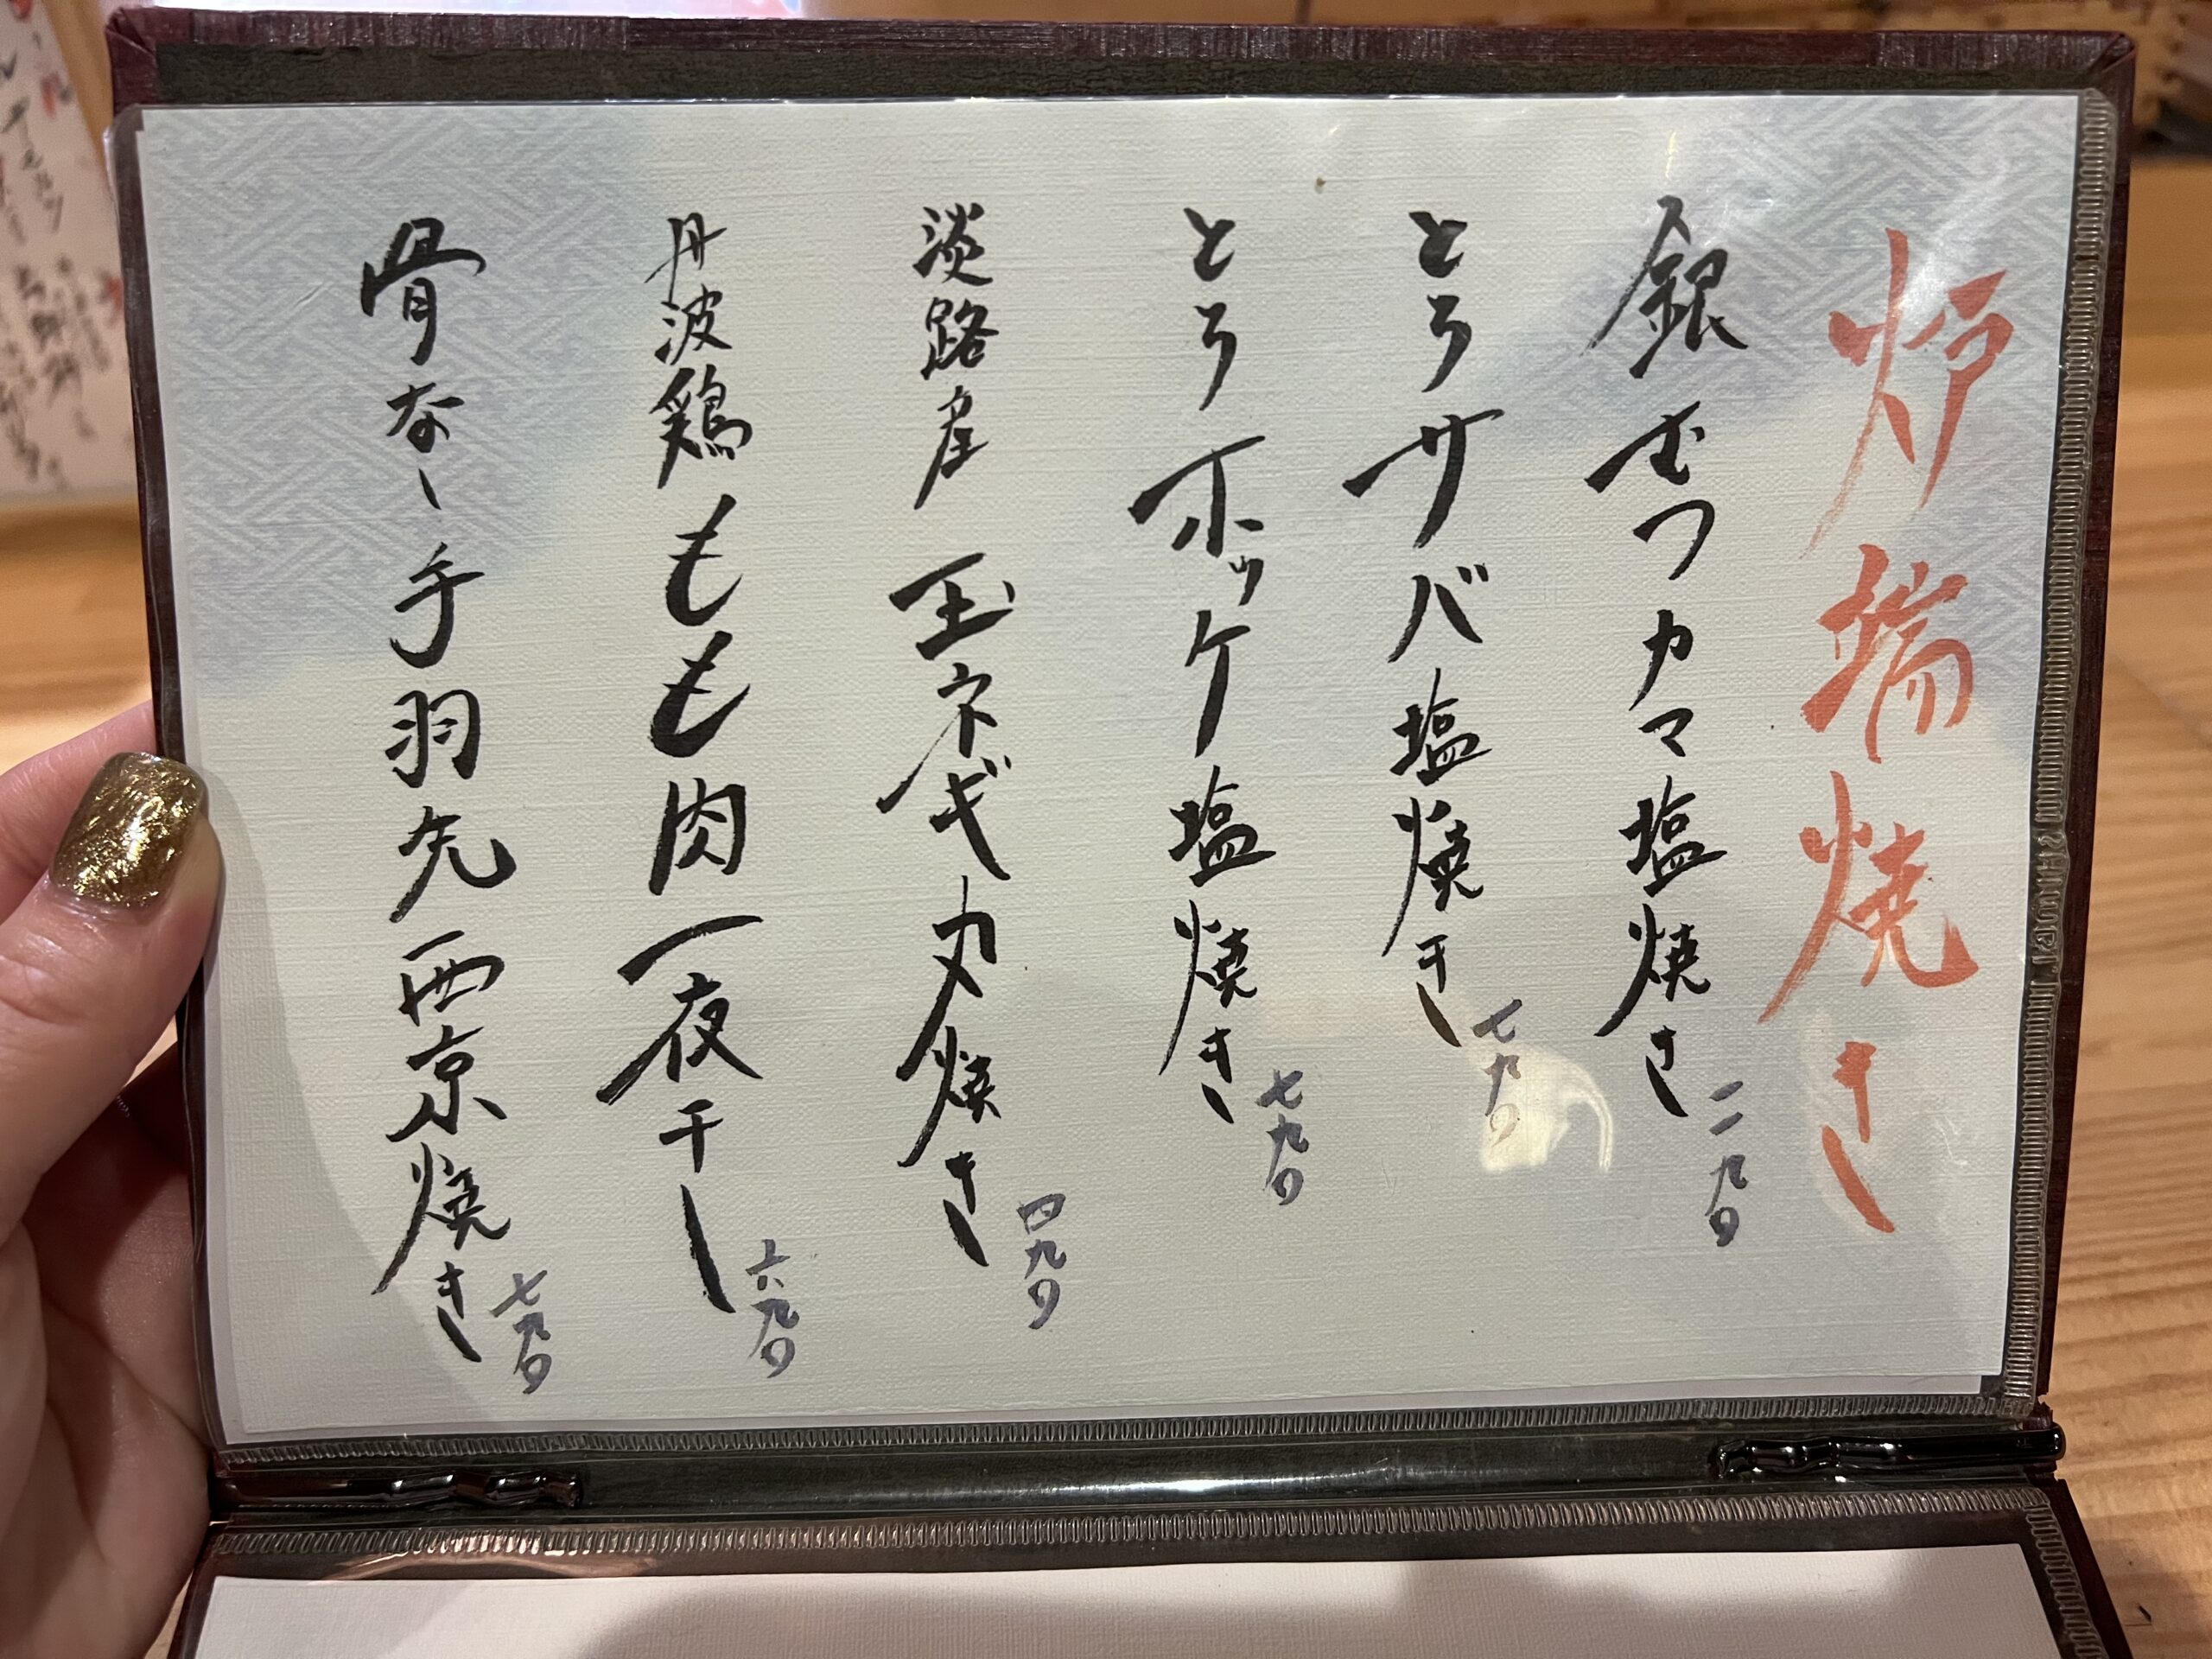 炉端焼き
銀むつカマ塩焼き 一一九〇
とろサバ塩焼き 七九〇
とろホッケ塩焼き 七九〇
淡路産 玉ネギ丸焼き 四九〇
丹波鶏もも肉一夜干し 六九〇
骨なし手羽先西京焼き 七九〇